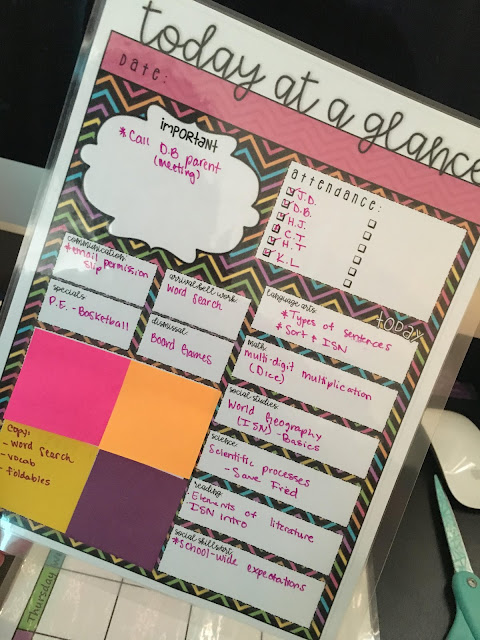 today at a glance
Date:
important
*Call D.B. parent
(meeting)
attendance:
J.D.
D.B.
H.J.
C.T.
H.T
K.L
communication:
*email permission
slip
specials:
P.E. - Basketball
arrival/bell-work:
word search
dismissal:
Board Games
today
language arts:
*Types of sentences
*Sort & ISN
math:
multi-digit multiplication
(Dice)
social studies:
World Geography
(ISN) - Basics
science:
Scientific processes
- Save Fred
reading:
- Elements of literature
ISN intro
social
*School-wide expectations
copy:
- word search
- vocab
- foldables
Thursday